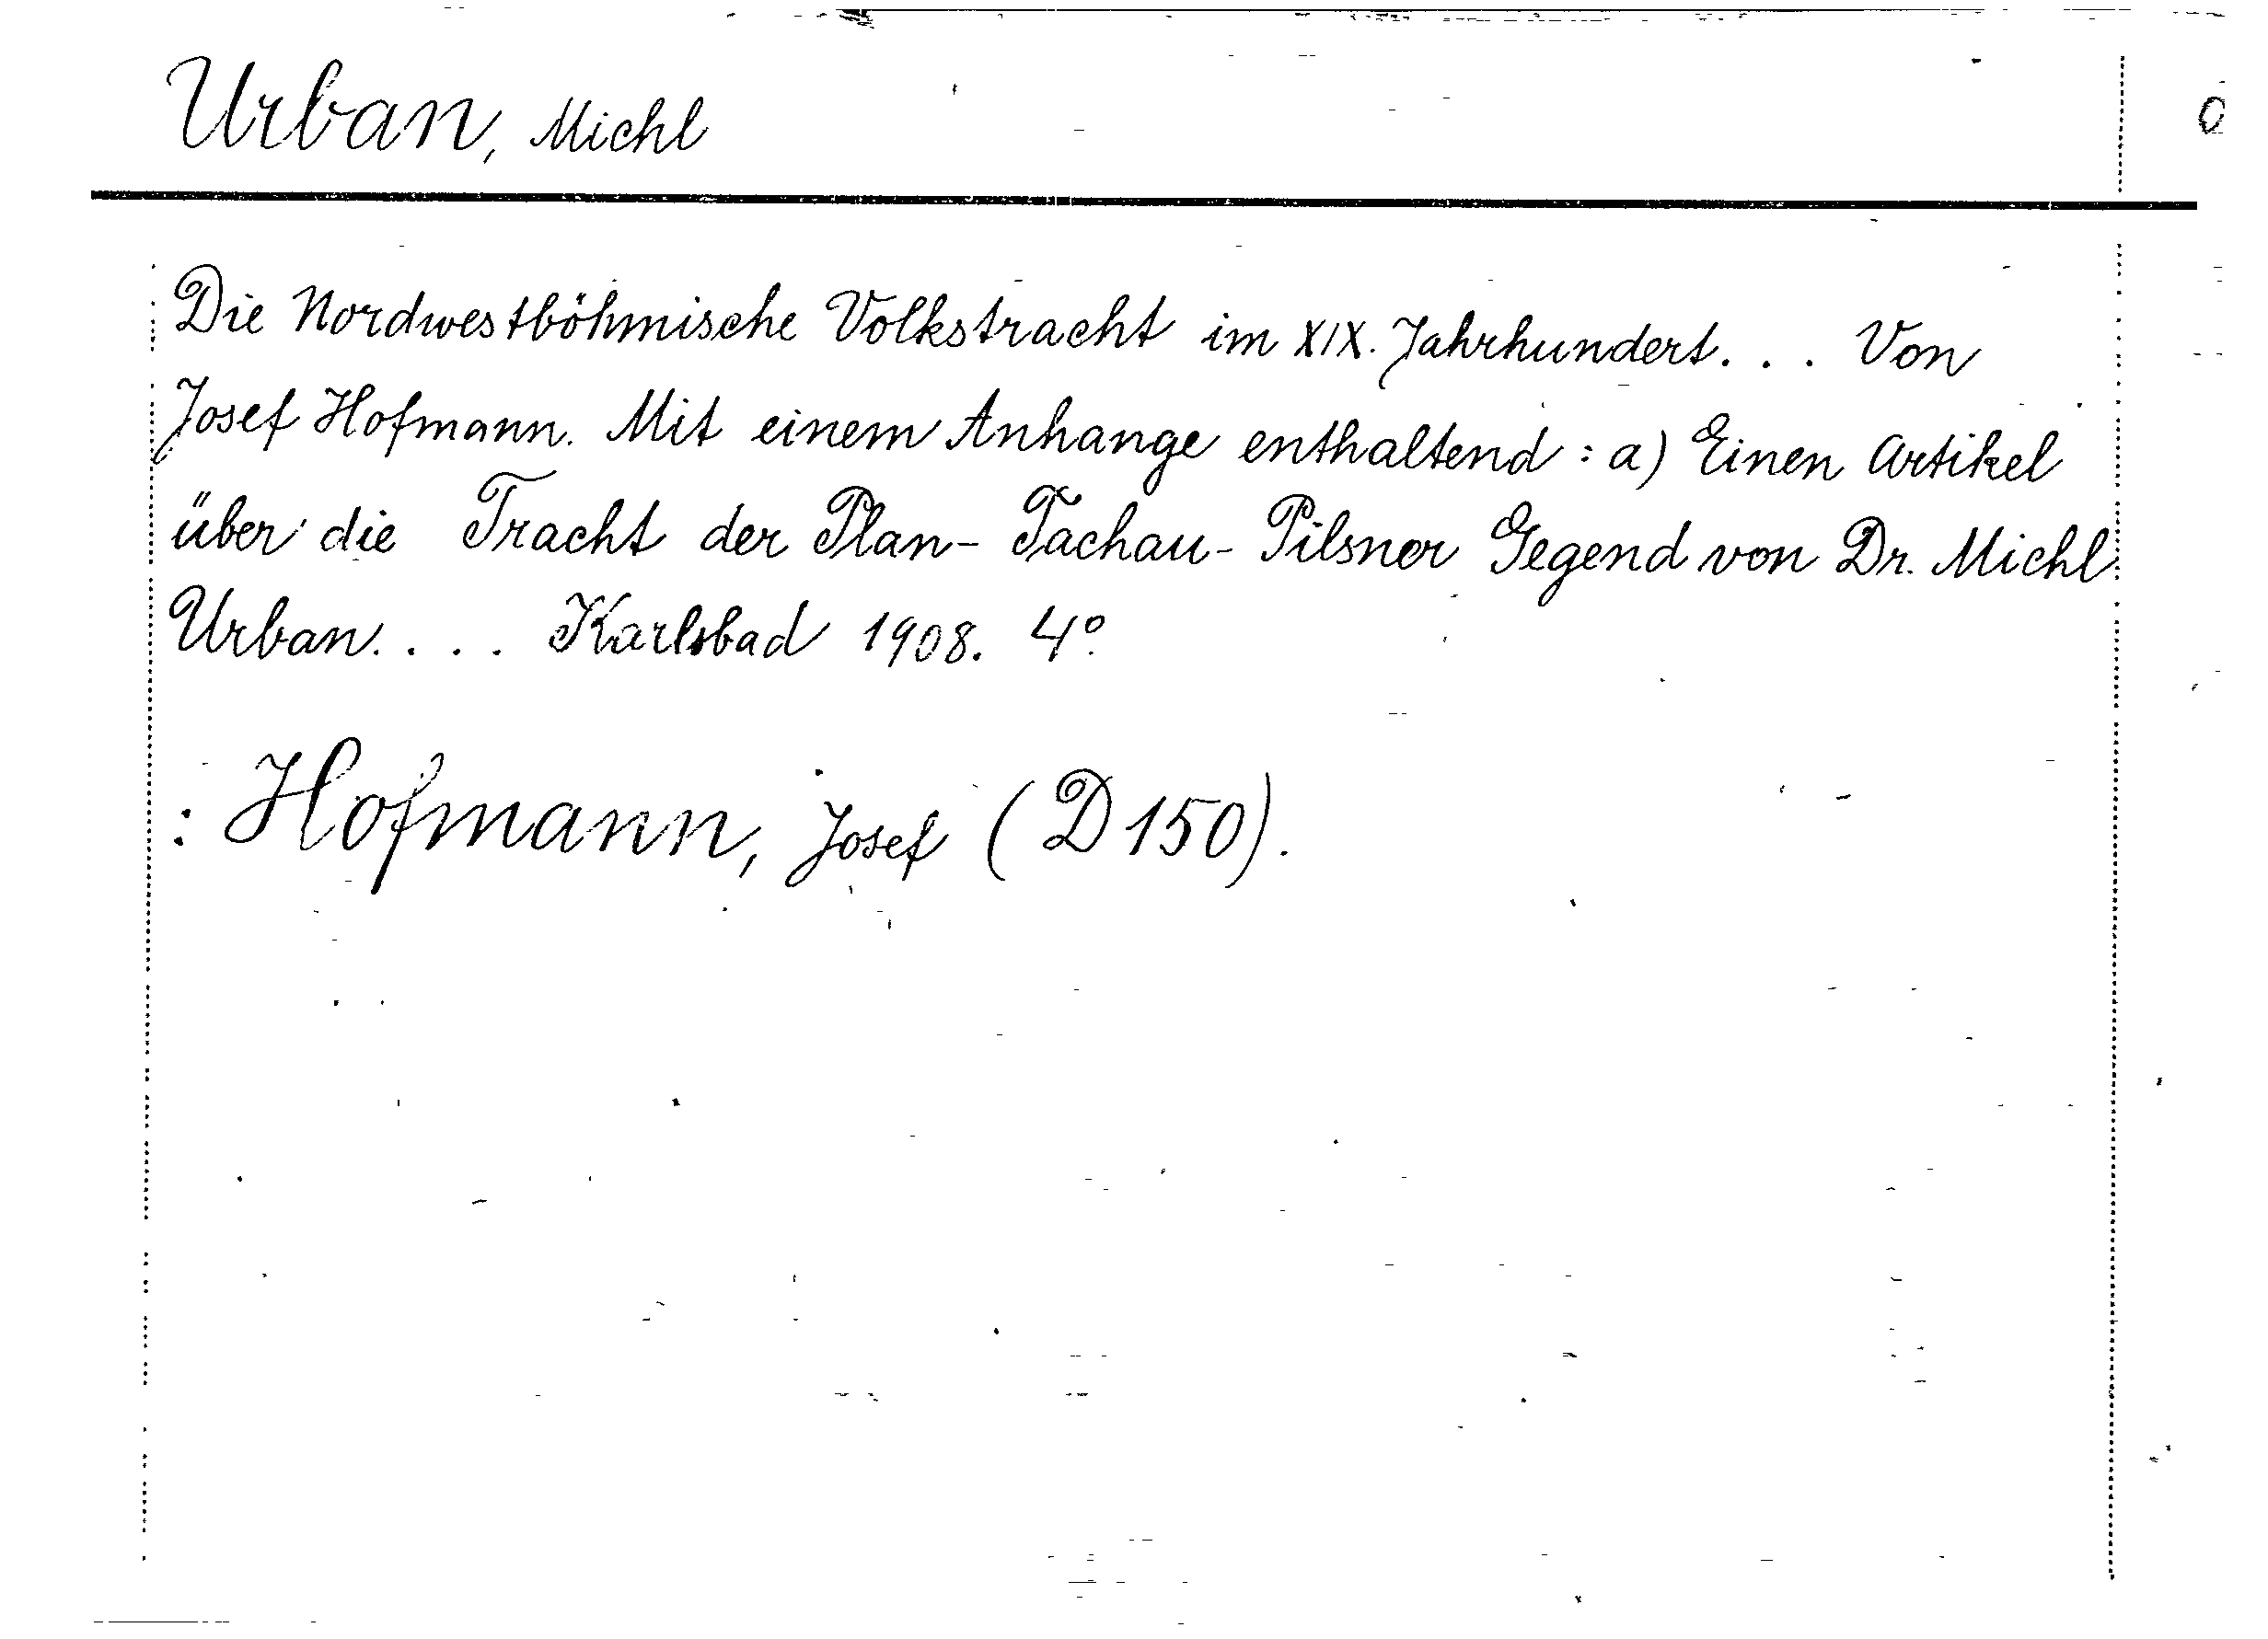 Urban, Michl
0
Die Nordwestböhmische Volkstracht im XIX. Jahrhundert... Von
Josef Hofmann. Mit einem Anhange enthaltend: a) Einen Artikel
über die Tracht der Plan-Tachau-Pilsner Gegend von Dr. Michl
Urban.... Karlsbad 1908. 4º.
: Hofmann, Josef (D 150).